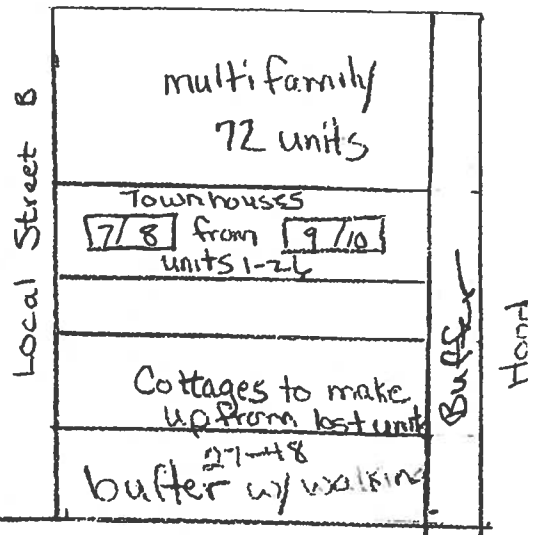 Local Street B
multifamily
72 units
Townhouses
7/8 from 9/10
units 1-26
Cottages to make
up from lost unit
27-48
buffer w/ walkin
Buffer